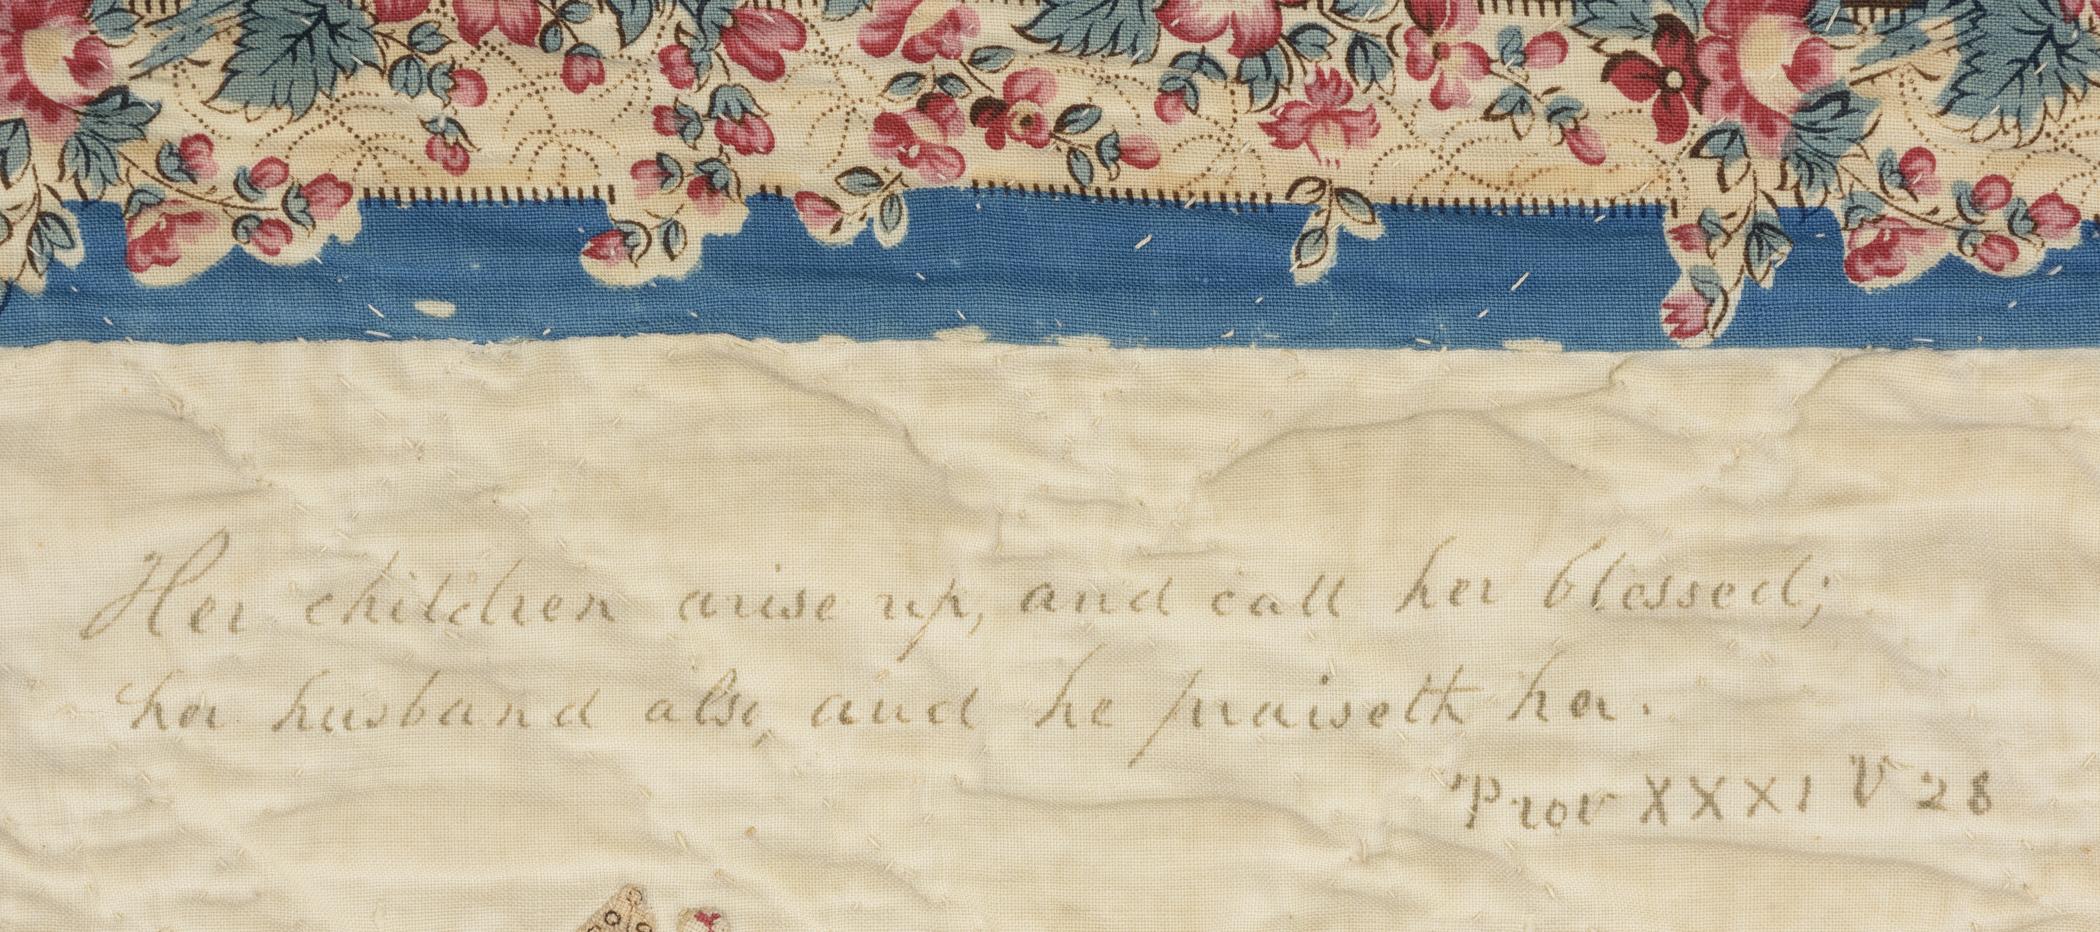 Her children arise up, and call her blessed;
her husband also, and he praiseth her.
Prov XXXI V 28